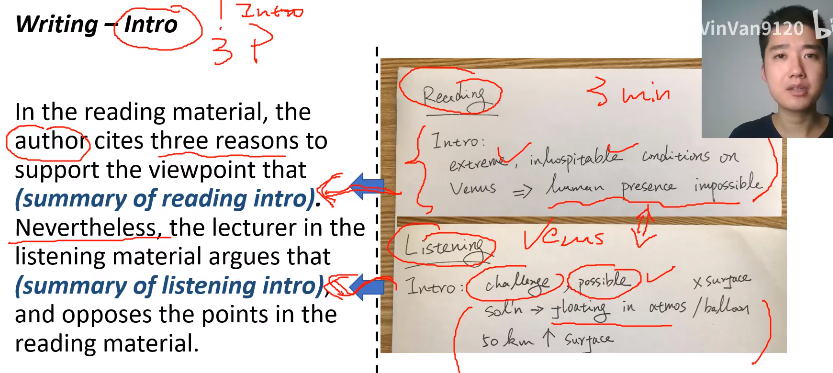 Writing – Intro
1 Intro
3 P
In the reading material, the
author cites three reasons to
support the viewpoint that
(summary of reading intro).
Nevertheless, the lecturer in the
listening material argues that
(summary of listening intro),
and opposes the points in the
reading material.
Reading
3 min
Intro:
extreme, inhospitable conditions on
Venus ⇒ human presence impossible
Listening
Venus
Intro: challenge, possible ✓ x surface
sol'n → floating in atmos / balloon
50 km ↑ surface
VinVan9120